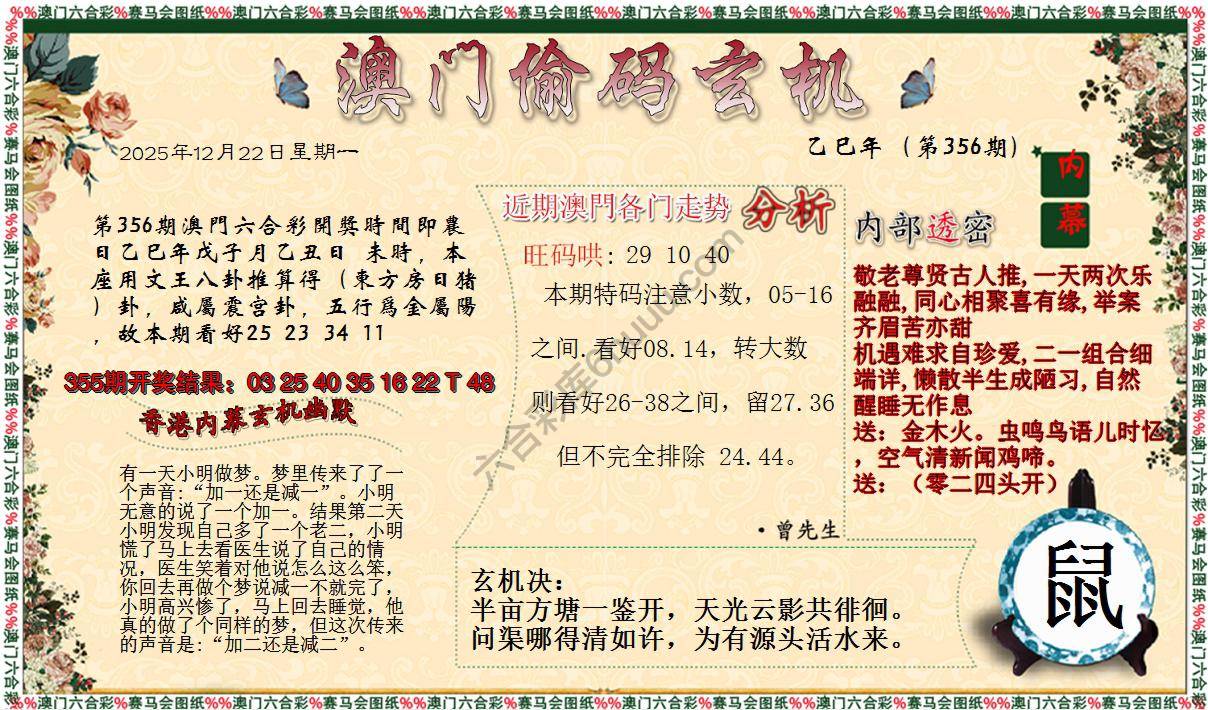 %%澳门六合彩%赛马会图纸%%澳门六合彩%赛马会图纸%%澳门六合彩%赛马会图纸%%澳门六合彩%赛马会图纸%%澳门六合彩%赛马会图纸%%澳门六合彩%赛马会图纸%%
澳门偷码玄机
2025年12月22日星期一
乙巳年（第356期）
内
幕
第356期澳門六合彩開獎時間即農
日乙巳年戊子月乙丑日 未時，本
座用文王八卦推算得（東方房日猪
）卦，咸屬震宫卦，五行爲金屬陽
，故本期看好25 23 34 11
355期开奖结果：03 25 40 35 16 22 T 48
香港内幕玄机幽默
有一天小明做梦。梦里传来了了一
个声音:“加一还是减一”。小明
无意的说了一个加一。结果第二天
小明发现自己多了一个老二，小明
慌了马上去看医生说了自己的情
况，医生笑着对他说怎么这么笨，
你回去再做个梦说减一不就完了，
小明高兴惨了，马上回去睡觉，他
真的做了个同样的梦，但这次传来
的声音是:“加二还是减二”。
近期澳門各门走势 分析
旺码哄: 29 10 40
本期特码注意小数，05-16
之间.看好08.14，转大数
则看好26-38之间，留27.36
但不完全排除 24.44。
·曾先生
六合彩库6huuu.com
内部透密
敬老尊贤古人推,一天两次乐
融融,同心相聚喜有缘,举案
齐眉苦亦甜
机遇难求自珍爱,二一组合细
端详,懒散半生成陋习,自然
醒睡无作息
送：金木火。虫鸣鸟语儿时忆
，空气清新闻鸡啼。
送：（零二四头开）
玄机决：
半亩方塘一鉴开，天光云影共徘徊。
问渠哪得清如许，为有源头活水来。
鼠